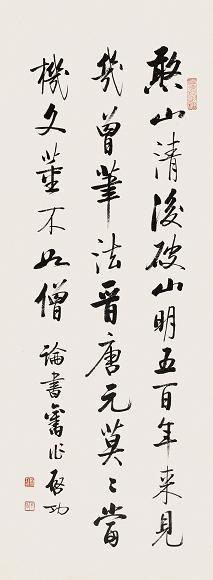 憨山清後破山明五百年来見
幾曾筆法晉唐元莫〻當
機文董不如僧
論書舊作 啓功